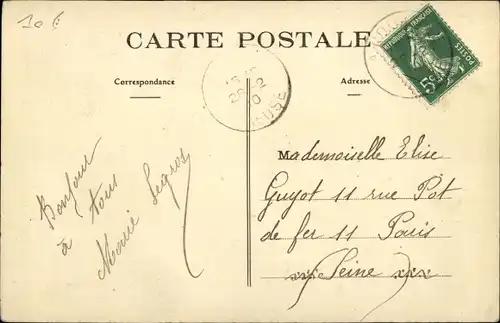 10 €
CARTE POSTALE
Correspondance
Adresse
REPUBLIQUE FRANÇAISE
POSTES
5c
28-2
Bonjour
à tous
Marie Legros
Mademoiselle Elise
Guyot 11 rue Pot
de fer 11 Paris
xx(Seine)xxx